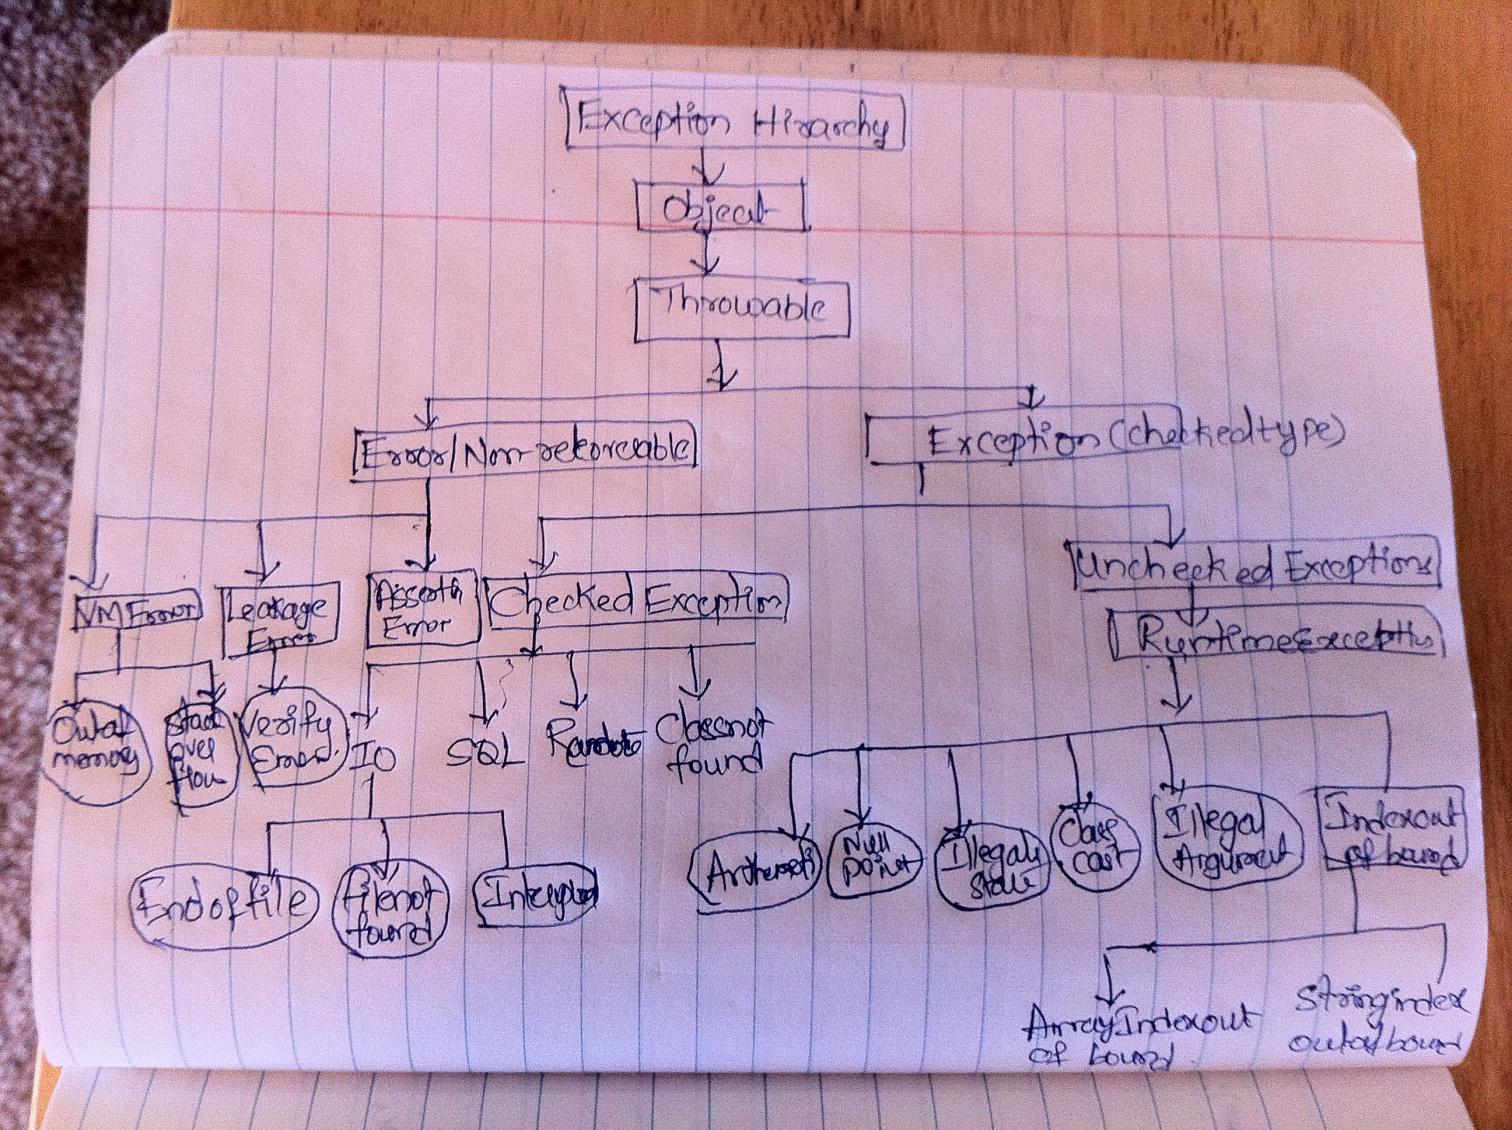 Exception Hirarchy
Object
Throwable
Error/Non-rekoreable
Exception (checked type)
VM Error
Leakage
Error
Error
Checked Exception
Unchecked Exceptions
Out of
memory
Stack
over
flow
Verify
Error
IO
SQL
Class not
found
End of file
File not
found
Null
point
Illegal
state
Class
cast
Illegal
Argument
Index out
of bound
Array Index out
of bound
String index
out of bound